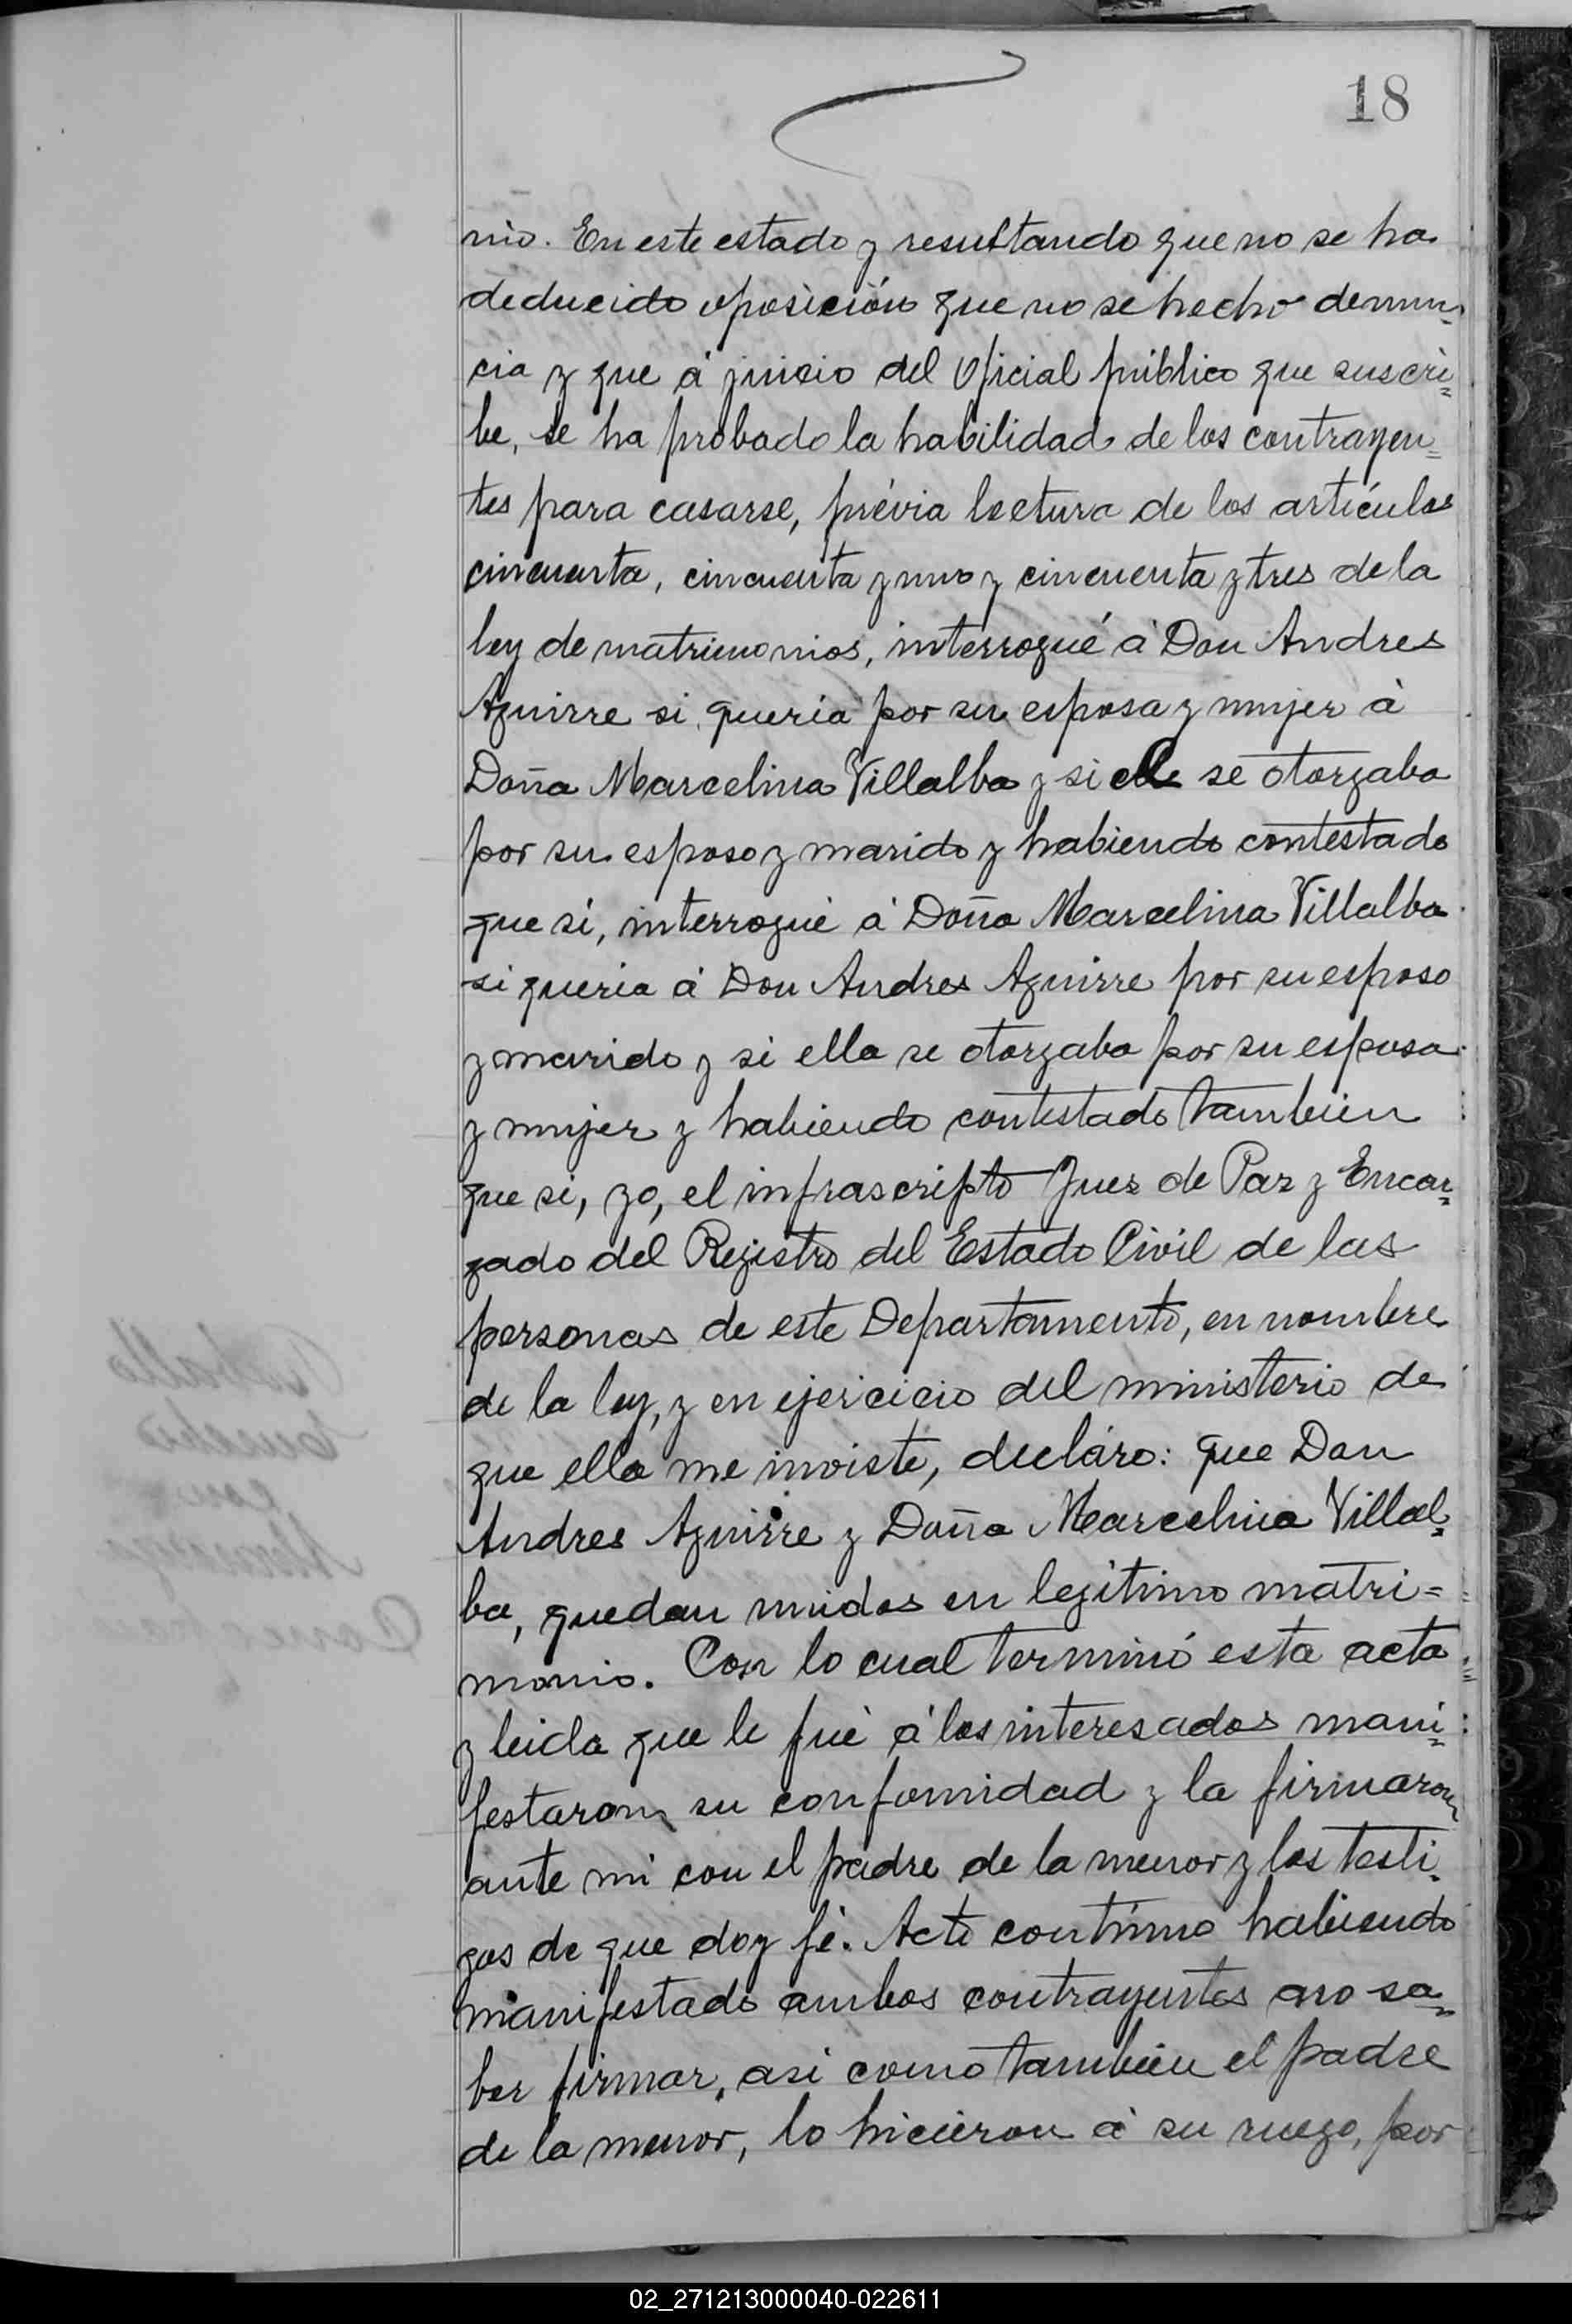 18
nio. En este estado y resultando que no se ha
deducido oposición que no se hecho denun=
cia y que á juicio del Oficial público que suscri=
be, se ha probado la habilidad de los contrayen=
tes para casarse, prévia lectura de los artículos
cincuenta, cincuenta y uno y cincuenta y tres de la
ley de matrimonios, interrogué á Don Andres
Aguirre si queria por su esposa y mujer á
Doña Marcelina Villalba y si el se otorgaba
por su esposo y marido y habiendo contestado
que si, interrogué á Doña Marcelina Villalba
si queria á Don Andres Aguirre por su esposo
y marido y si ella se otorgaba por su esposa
y mujer y habiendo contestado tambien
que si, yo, el infrascripto Juez de Paz y Encar=
gado del Registro del Estado Civil de las
personas de este Departamento, en nombre
de la ley, y en ejercicio del ministerio de
que ella me inviste, decláro: que Don
Andres Aguirre y Doña Marcelina Villal=
ba, quedan unidos en legitimo matri=
monio. Con lo cual terminó esta acta
y leida que le fué á los interesados mani=
festaron su confomidad y la firmaron
ante mi con el padre de la menor y los testi=
gos de que doy fé. Acto contínuo habiendo
manifestado ambos contrayentes no sa=
ber firmar, asi como tambien el padre
de la menor, lo hicieron á su ruego, por
02_271213000040-022611